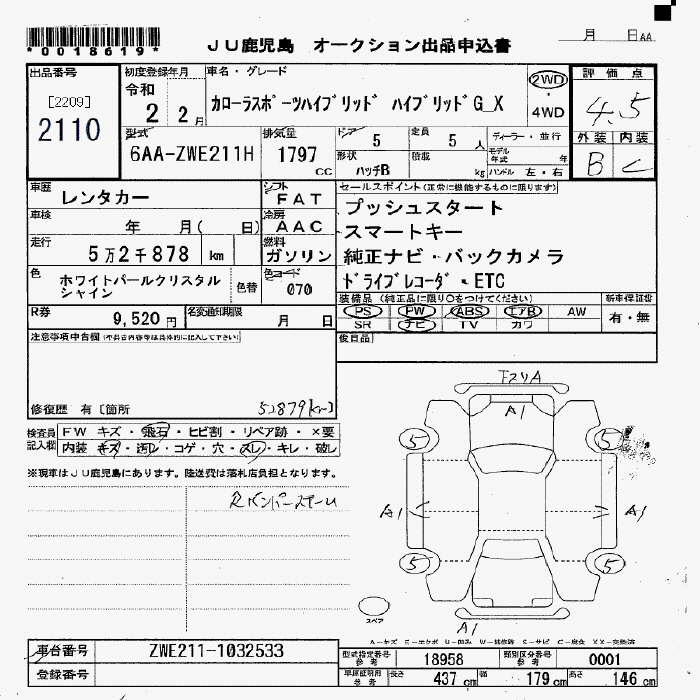 *0018619*
JU鹿児島 オークション出品申込書
月 日AA
出品番号
[2209]
2110
初度登録年月
令和
2 2月
車名・グレード
カローラスポーツハイブリッド ハイブリッドG_X
2WD
・
4WD
評価点
4.5
外装 内装
B C
型式
6AA-ZWE211H
排気量
1797
cc
ドア 5
形状
ハッチB
定員 5 人
積載 kg
ディーラー・並行
モデル年式 年
ハンドル 左・右
車歴
レンタカー
車検
年 月( 日)
走行
5万2千878 km
色
ホワイトパールクリスタル
シャイン
色替
シフト
FAT
冷房
AAC
燃料
ガソリン
色コード
070
セールスポイント(正常に機能するものに限ります)
プッシュスタート
スマートキー
純正ナビ・バックカメラ
ドライブレコーダ・ETC
R券
9,520円
名変通知期限
月 日
装備品(純正品に限り○をつけてください)
PS PW ABS エアB AW
SR ナビ TV カワ
新車保証書
有・無
注意事項申告欄(不具合内容等は具体的に記入して下さい)
後日品
修復歴 有〔箇所
52879(km)
検査員
記入欄
FW キズ・飛石・ヒビ割・リペア跡・×要
内装 キズ・汚レ・コゲ・穴・スレ・キレ・破レ
※現車はJU鹿児島にあります。陸送費は落札店負担となります。
A1
5 5
A1 A1
5 5
スペア
A1
車台番号
ZWE211-1032533
登録番号
型式指定番号
参考
18958
類別区分番号
参考
0001
長さ 437 cm
幅 179 cm
高さ 146 cm